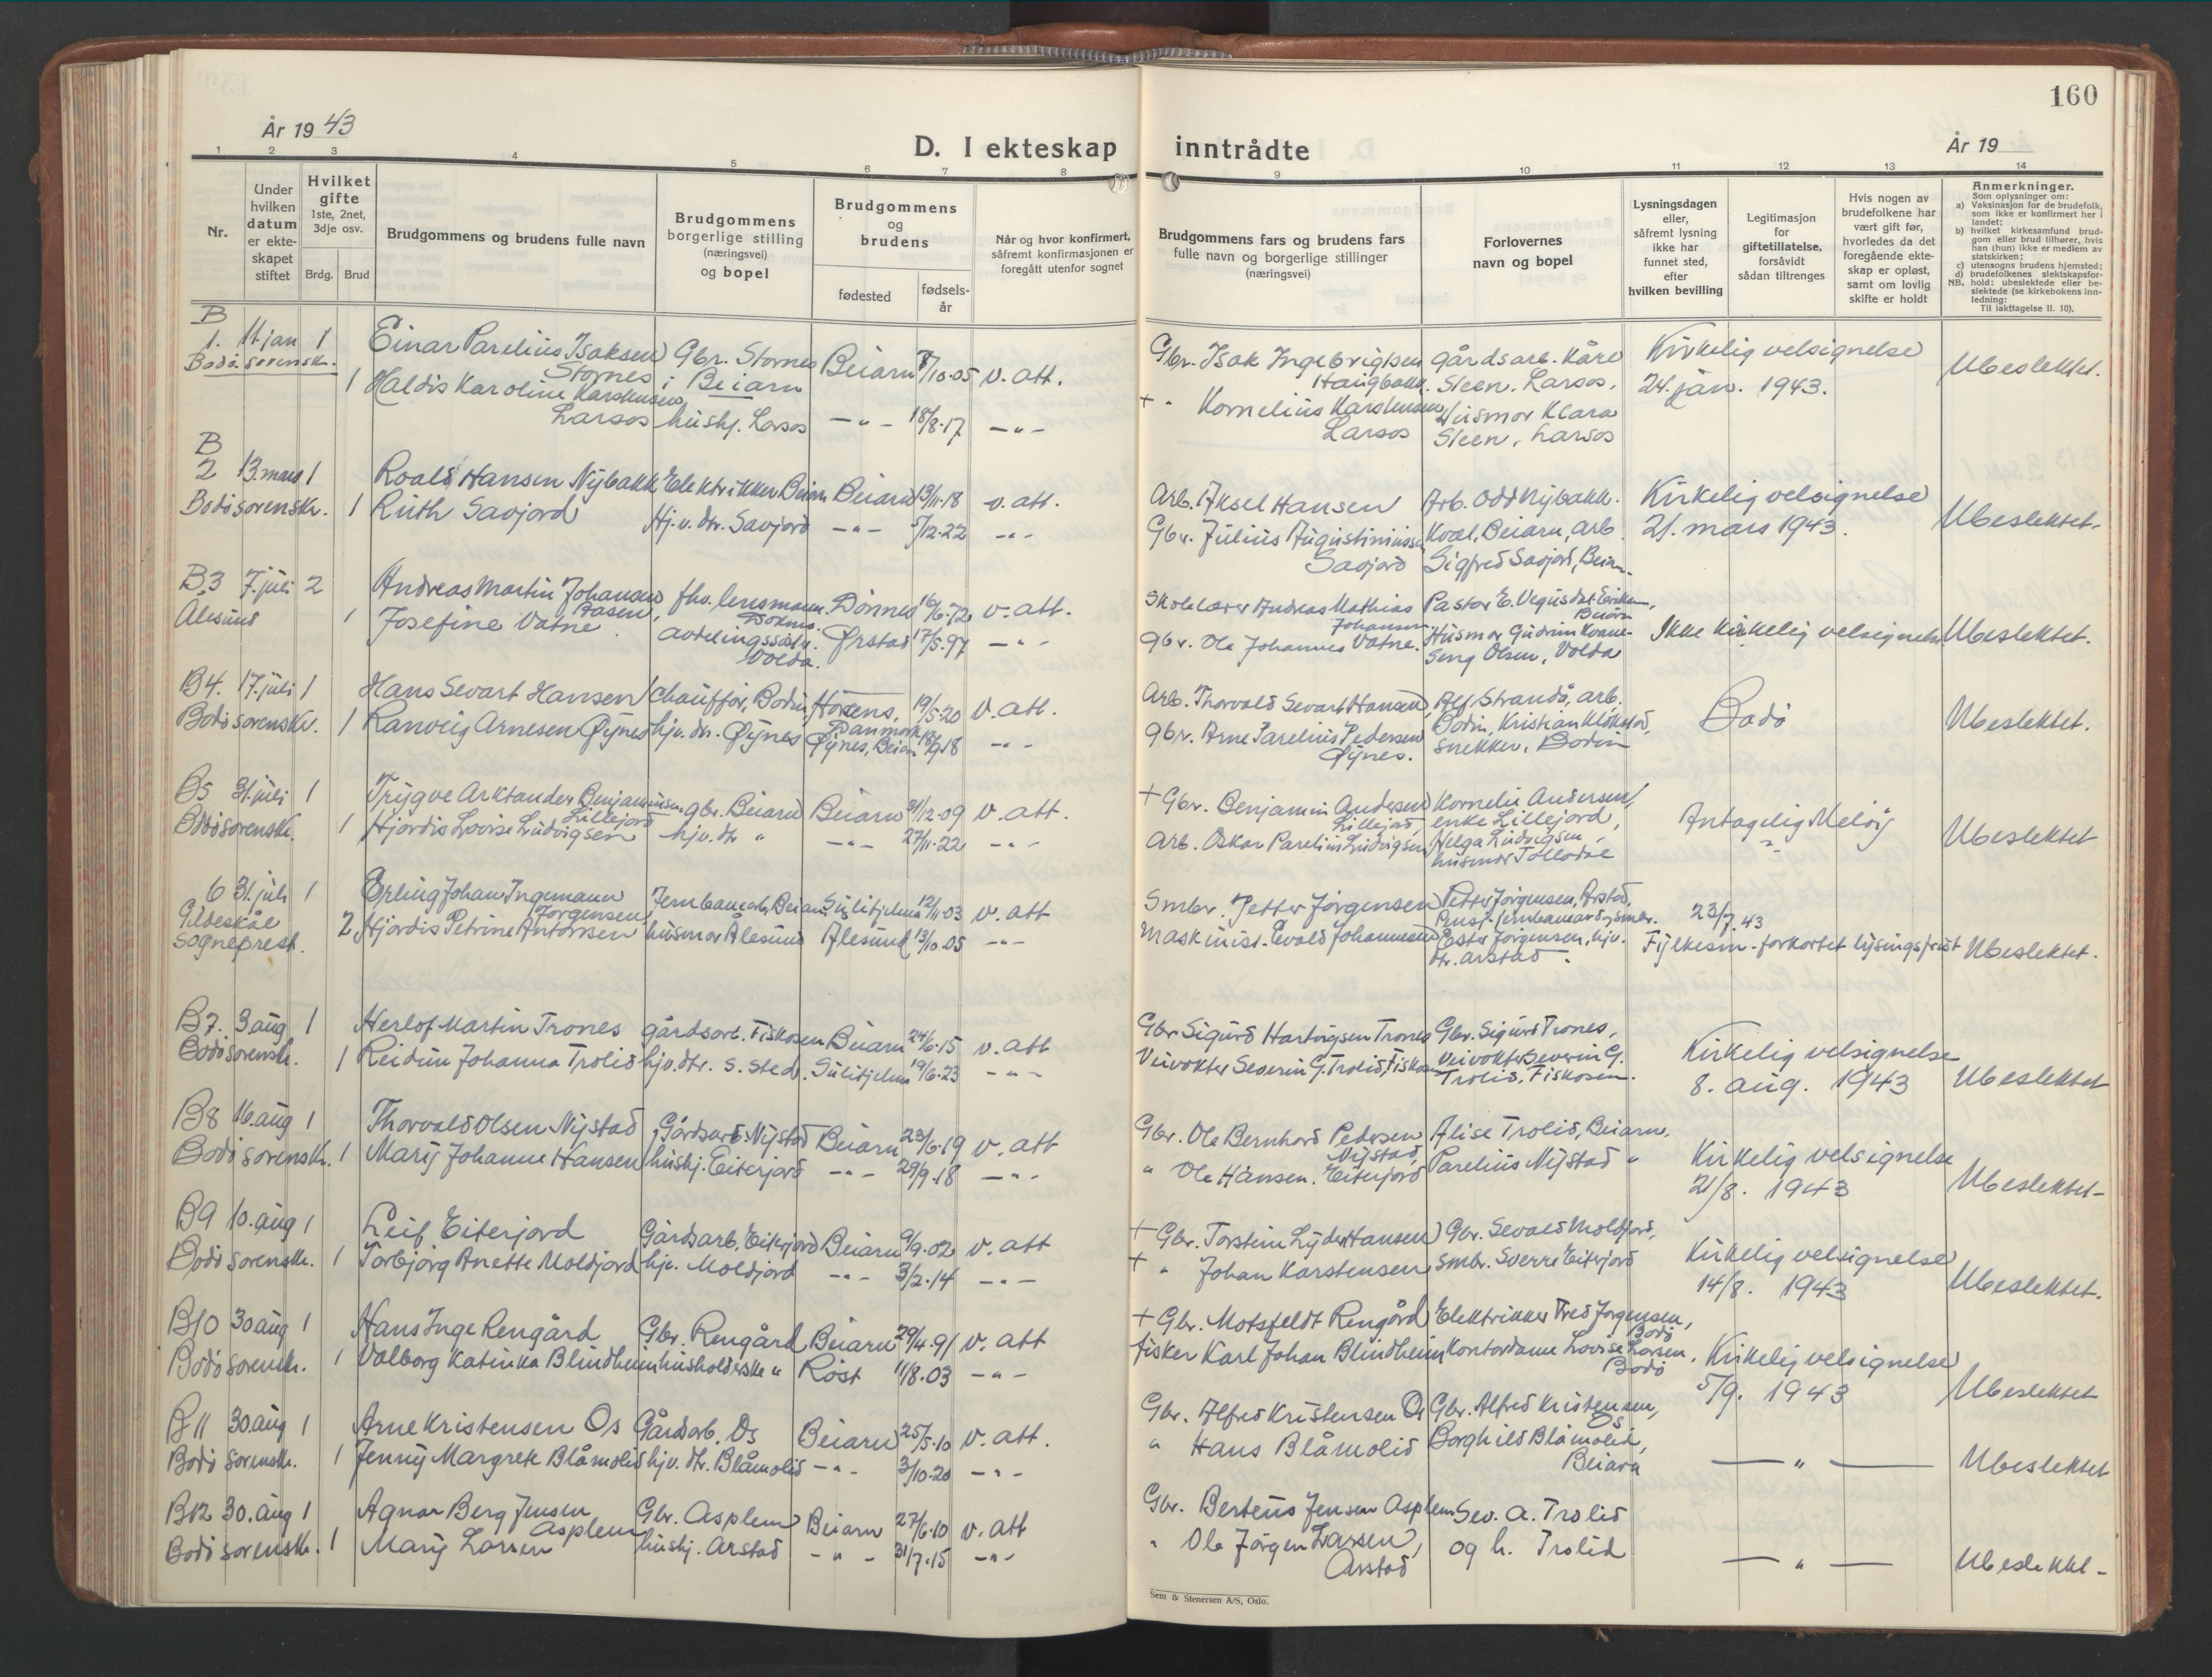 160
År 1943
D. I ekteskap inntrådte
År 19
1 2 3 4 5 6 7 8 9 10 11 12 13 14
Nr.
Under hvilken datum er ekteskapet stiftet
Hvilket gifte
1ste, 2net, 3dje osv.
Brdg. Brud
Brudgommens og brudens fulle navn
Brudgommens borgerlige stilling (næringsvei) og bopel
Brudgommens og brudens
fødested
fødselsår
Når og hvor konfirmert, såfremt konfirmasjonen er foregått utenfor sognet
Brudgommens fars og brudens fars fulle navn og borgerlige stillinger (næringsvei)
Forlovernes navn og bopel
Lysningsdagen eller, såfremt lysning ikke har funnet sted, efter hvilken bevilling
Legitimasjon for giftetillatelse, forsåvidt sådan tiltrenges
Hvis nogen av brudefolkene har vært gift før, hvorledes da det foregående ekteskap er opløst, samt om lovlig skifte er holdt
Anmerkninger.
Som oplysninger om:
a) Vaksinasjon for de brudefolk, som ikke er konfirmert her i landet;
b) hvilket kirkesamfund brudgom eller brud tilhører, hvis han (hun) ikke er medlem av statskirken;
c) utensogns brudens hjemsted;
d) brudefolkenes slektskapsforhold: ubeslektede eller beslektede (se kirkebokens innledning:
NB.
Til iakttagelse II. 10).
B
1. 11. jan 1 Einar Parelius Isaksen Gbr. Stornes Beiarn 7/10.05 v. att. Gbr. Isak Ingebrigtsen gårdsarb. Kåre Kirkelig velsignelse Ubeslektet.
Bodø sorenskr. Stornes i Beiarn Haugbakk. Steen, Larsos, 24. jan. 1943.
1 Haldis Karoline Karstensen + " Kornelius Karstensen Husmor Klara
Larsos hushj. Larsos — " — 18/8.17 — " — Larsos Steen, Larsos
B
2 13. mars 1 Roald Hansen Nybakk Elektrikker Beiarn Beiarn 13/11.18 v. att. Arb. Aksel Hansen Arb. Odd Nybakk. Kirkelig velsignelse
Bodø sorenskr. 1 Ruth Savjord Hj.v. dtr. Savjord — " — 5/12.22 — " — Gbr. Julius Kvæl, Beiarn, arb 21. mars 1943. Ubeslektet.
Savjord Sigfred Savjord, Beiarn.
B3 7. juli 2 Andreas Martin Johansen fhv. lensmann. Dønnes 16/6.72 v. att. Skolelærer Andreas Mathias Pastor E.
Ålesund Aasen, Johansen
1 Josefine Vatne. avdelingssøst. Ørstad 17/5.97 — " — gbr. Ole Johannes Vatne. Husmor Gudrun Ikke kirkelig velsignelse Ubeslektet.
Volda. Olsen, Volda
B4. 17. juli 1 Hans Sevart Hansen chauffør, Bodin Horsens, 19/5.20 v. att. Arb. Thorvald Sevart Hansen Alf Strand, arb.
Bodø sorenskr. 1 Ranveig Arnesen Øynes hjv. dtr. Øynes Danmark Bodin, Kristian Klokstad, Bodø Ubeslektet.
Øynes, Beiarn 18 — " — gbr. Arne Parelius Pedersen snekker, Bodin
Øynes.
B5 31. juli 1 Trygve Arktander Benjaminsen gbr. Beiarn Beiarn 31/12.09 v. att. + Gbr. Benjamin Andersen Kornelie Andersen,
Lillejord Lillejord, enke Lillejord, Antagelig Meløy Ubeslektet
Bodø sorenskr. 1 Hjordis Lovise Ludvigsen hjv. dtr " — " — 27/11.22 — " — Arb. Oskar Parelius Ludvigsen Helga Ludvigsen,
husmor Tollådal
6 31. juli 1 Erling Johan Ingemann Jernbanearb. Beiarn Sulitjelma 12/11.03 v. att Smbr. Petter Jørgensen Petter Jørgensen, Arstad, 23/7.43
Gildeskål Jørgensen
sogneprest. 2 Hjørdis Petrine Antonsen husmor Ålesund Ålesund 13/10.05 — " — Maskinist. Evald Johannesen Ester Jørgensen, hjv. Fylkesm. forkortet lysingsfrist Ubeslektet.
dtr. Arstad.
B7. 3 aug 1 Herlof Martin Trones gårdsarb. Fiskosen Beiarn 24/6.15 v. att Gbr Sigurd Hartvigsen Trones Gbr. Sigurd Trones, Kirkelig velsignelse
Bodø sorenskr. 1 Reidun Johanna Trolid hjv. dtr. s. sted. Sulitjelma 19/6.23 — " — Veivokter Severin G. Trolid, Fiskosen Veivokter Severin G. 8. aug. 1943 Ubeslektet
Trolid, Fiskosen.
B8 16. aug 1 Thorvald Olsen Nystad Gårdsarb. Nystad Beiarn 23/6.19 v. att Gbr. Ole Bernhard Pedersen Alise Trolid, Beiarn. Kirkelig velsignelse
Nystad,
Bodø sorenskr. 1 Mary Johanne Hansen hushj. Eiterjord — " — 29/9.18 — " — " Ole Hansen. Eiterjord Parelius Nystad " 21/8. 1943 Ubeslektet
B9 10. aug 1 Leif Eiterjord Gårdsarb. Eiterjord Beiarn 9/9.02 v. att + Gbr. Torstein Lyder Hansen Gbr. Sevald Moldjord, Kirkelig velsignelse
Bodø sorenskr. 1 Torbjørg Anette Moldjord hjv. Moldjord — " — 3/2.14 — " — + " Johan Karstensen, smbr. Sverre Eiterjord 14/8. 1943 Ubeslektet.
B10 30 aug 1 Hans Inge Rengård Gbr. Rengård Beiarn 29/4.91 v. att + Gbr. Motsfeldt Rengård Elektrikker Fred Jørgensen,
Bodø
Bodø sorenskr. 1 Valborg Katinka Blindheim husholderske " Røst 11/8.03 — " — fisker Karl Johan Blindheim Kontordame Lovise Larsen, Kirkelig velsignelse
Bodø 5/9. 1943 Ubeslektet
B11 30 aug 1 Arne Kristensen Os Gårdsarb. Os Beiarn 25/5.10 v. att. Gbr. Alfred Kristensen Os Gbr. Alfred Kristensen,
Os
Bodø sorenskr. 1 Jenny Margrete Blåmolid hjv. dtr. Blåmolid — " — 3/10.20 — " — " Hans Blåmolid Borghild Blåmolid, — " — Ubeslektet
Beiarn
B12 30. aug 1 Agnar Berg Jensen Gbr. Asplem Beiarn 27/6.10 v. att Gbr. Berteus Jensen Asplem Sev. A. Trolid
Asplem
Bodø sorenskr. 1 Mary Larsen hushj. Arstad — " — 31/7.15 — " — " Ole Jørgen Larsen, og h. Trolid — " — Ubeslektet
Arstad
Sem & Stenersen A/S, Oslo.